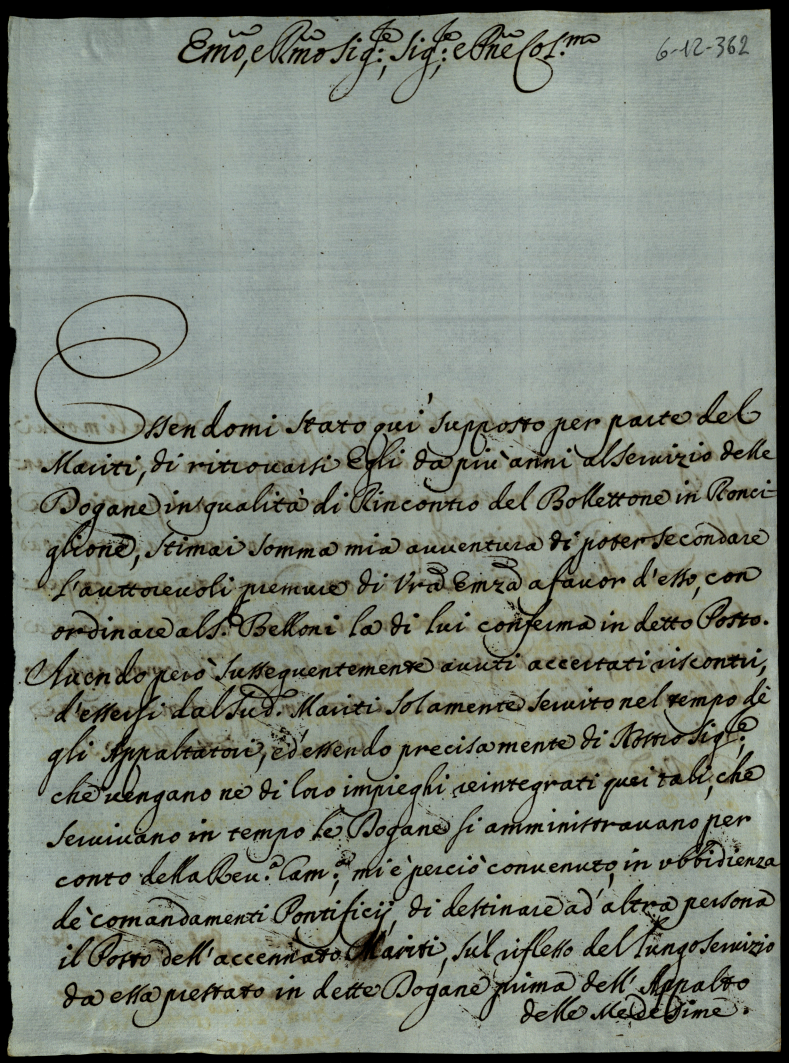 Em̃o, e Rm̃o Sig.re, Sig.re e Pñe Col.mo
6-12-362
Essendomi stato qui supposto per parte del
Mariti, di ritrovarsi Egli da più anni al servizio delle
Dogane in qualità di Rincontro del Bollettone in Ronci-
glione, stimai somma mia avventura di poter secondare
l'auttorevoli premure di Vrã Emzã a favor d'esso, con
ordinare al S.r Belloni la di lui conferma in detto Posto.
Avendo però susseguentemente avuti accertati riscontri,
d'essersi dal Sud.o Mariti solamente servito nel tempo dè
gli Appaltatori, ed essendo precisa mente di Nostro Sig.re,
che vengano nè di loro impieghi reintegrati quei tali, che
servivano in tempo le Dogane si amministravano per
conto della Rev.a Cam.a, mi è perciò convenuto, in ubbidienza
dè comandamenti Pontificij, di destinare ad altra persona
il Posto dell'accennato Mariti, sul riflesso del lungo servizio
da essa prestato in dette Dogane prima dell'Appalto
delle Medesime.